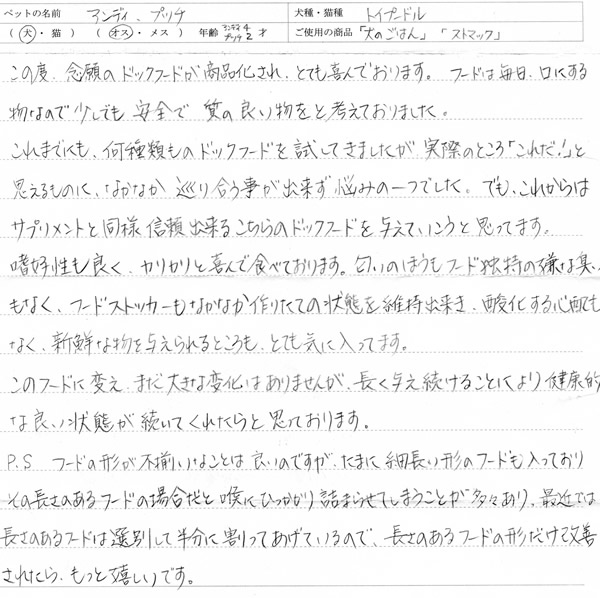 ペットの名前 アンディ、プッチ 犬種・猫種 トイプードル
(犬・猫) (オス・メス) 年齢 アンディ4 プッチ2 才 ご使用の商品 「犬のごはん」「ストマック」
この度、念願のドックフードが商品化され、とても喜んでおります。フードは毎日、口にする
物なので少しでも安全で質の良い物をと考えておりました。
これまでにも、何種類ものドックフードを試してきましたが実際のところ「これだ!」と
思えるものに、なかなか巡り合う事が出来ず悩みの一つでした。でも、これからは
サプリメントと同様信頼出来るこちらのドックフードを与えていこうと思ってます。
嗜好性も良く、カリカリと喜んで食べております。匂いのほうもフード独特の嫌な臭い
もなく、フードストッカーもなかなか作りたての状態を維持出来き、酸化する心配も
なく、新鮮な物を与えられるところも、とても気に入ってます。
このフードに変え、まだ大きな変化はありませんが、長く与え続けることにより健康的
な良い状態が続いてくれたらと思っております。
P.S フードの形が不揃いなことは良いのですが、たまに細長い形のフードも入っており
その長さのあるフードの場合だと喉にひっかかり詰まらせてしまうことが多々あり、最近では
長さのあるフードは選別して半分に割ってあげているので、長さのあるフードの形だけで改善
されたら、もっと嬉しいです。